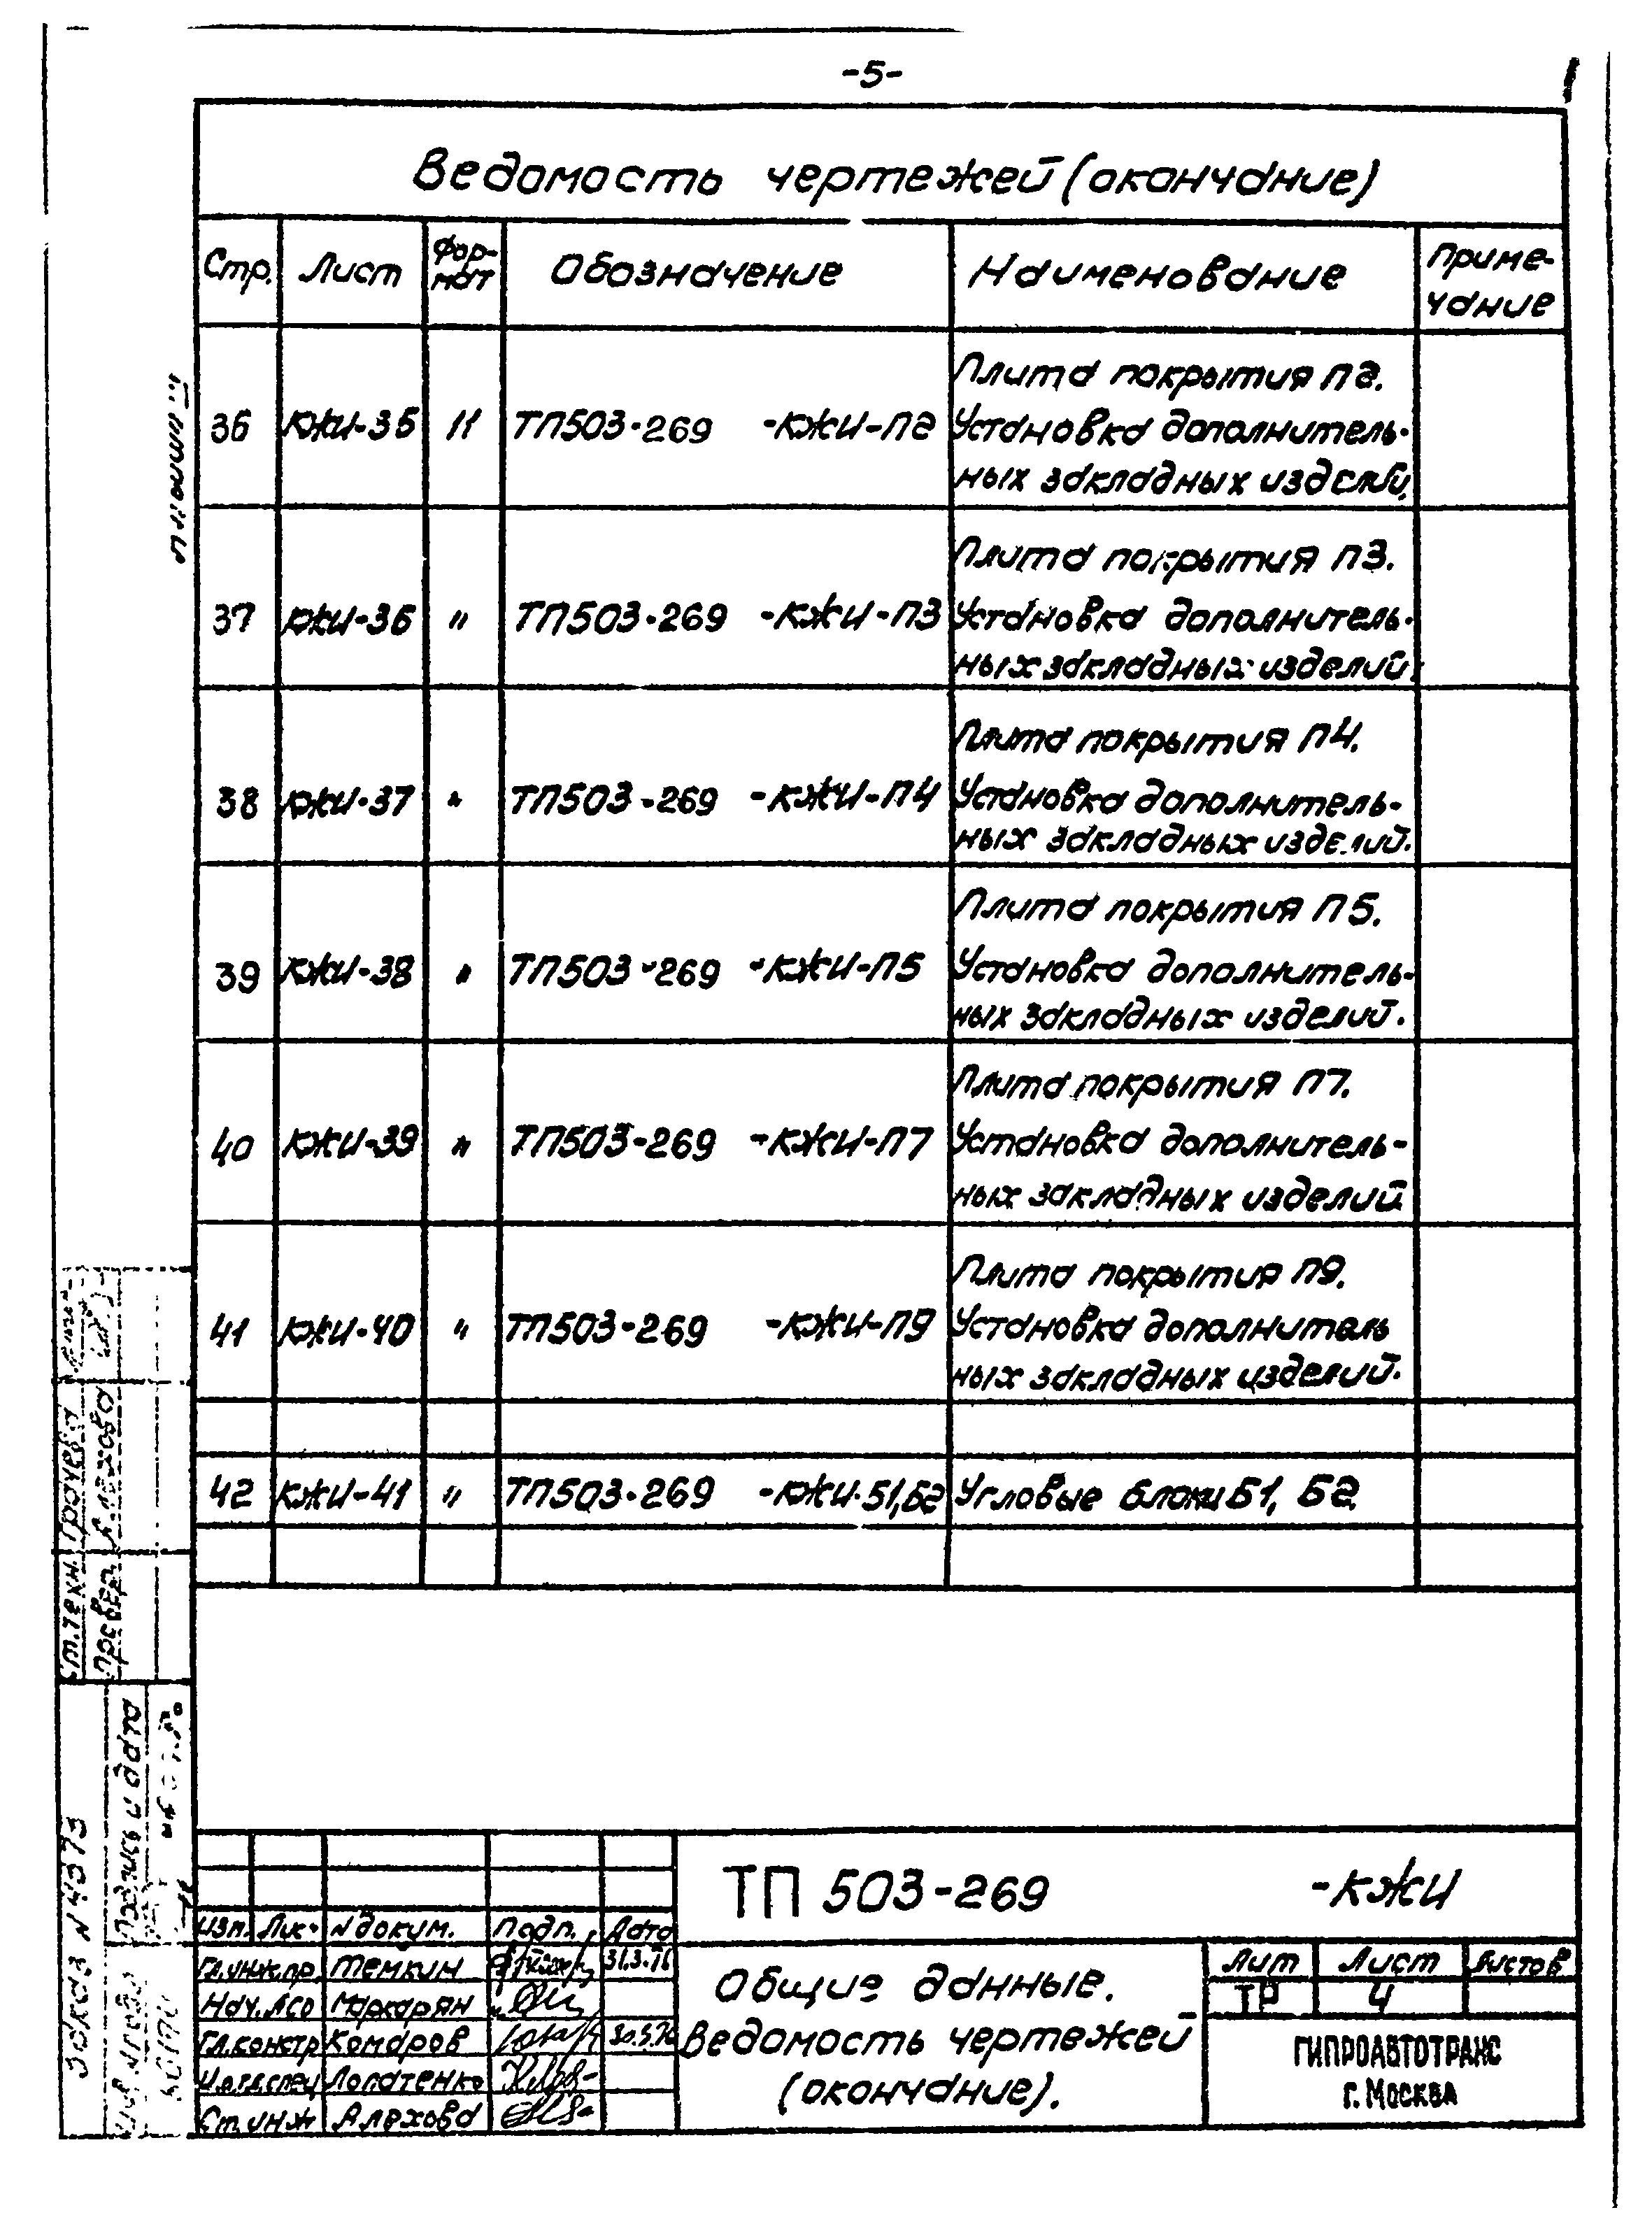 -5-
Ведомость чертежей (окончание)
Стр. Лист Фор-мат Обозначение Наименование Приме-чание
Плита покрытия П2.
36 КЖИ-35 11 ТП503-269 -КЖИ-П2 Установка дополнитель-
ных закладных изделий.
Плита покрытия П3.
37 КЖИ-36 " ТП503-269 -КЖИ-П3 Установка дополнитель-
ных закладных изделий.
Плита покрытия П4.
38 КЖИ-37 " ТП503-269 -КЖИ-П4 Установка дополнитель-
ных закладных изделий.
Плита покрытия П5.
39 КЖИ-38 " ТП503-269 -КЖИ-П5 Установка дополнитель-
ных закладных изделий.
Плита покрытия П7.
40 КЖИ-39 " ТП503-269 -КЖИ-П7 Установка дополнитель-
ных закладных изделий
Плита покрытия П9.
41 КЖИ-40 " ТП503-269 -КЖИ-П9 Установка дополнитель
ных закладных изделий.
42 КЖИ-41 " ТП503-269 -КЖИ-Б1,Б2 Угловые блоки Б1, Б2.
ТП 503-269 -КЖИ
Изм. Лист N докум. Подп. Дата
Гл.инж.пр. Темкин 31.3.76
Нач.АСО Маркарян
Гл.констр Комаров
Лопатенко
Ст.инж Алехова
Общие данные.
Ведомость чертежей
(окончание).
Лит Лист Листов
ТР 4
ГИПРОАВТОТРАНС
г. Москва
Ст.техн. Грачева
Провер. Алехова
Подпись и дата
Заказ N 4373